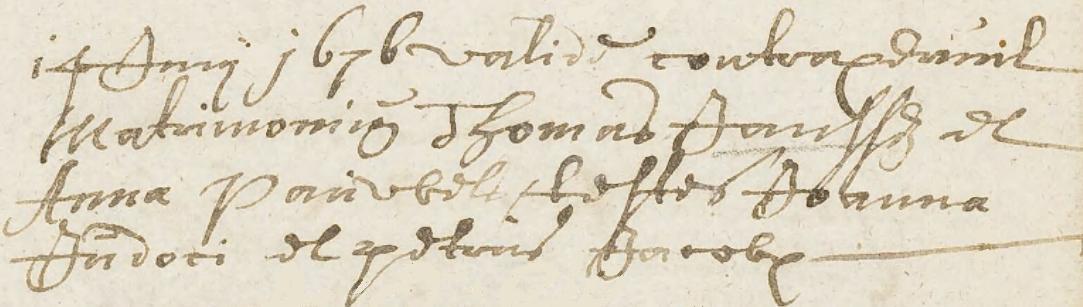 14 Junij 1676 valide contraxerunt
Matrimoniu Thomas Janss et
Anna Pauwels testes Joanna
Judoci et petrus Jacobs